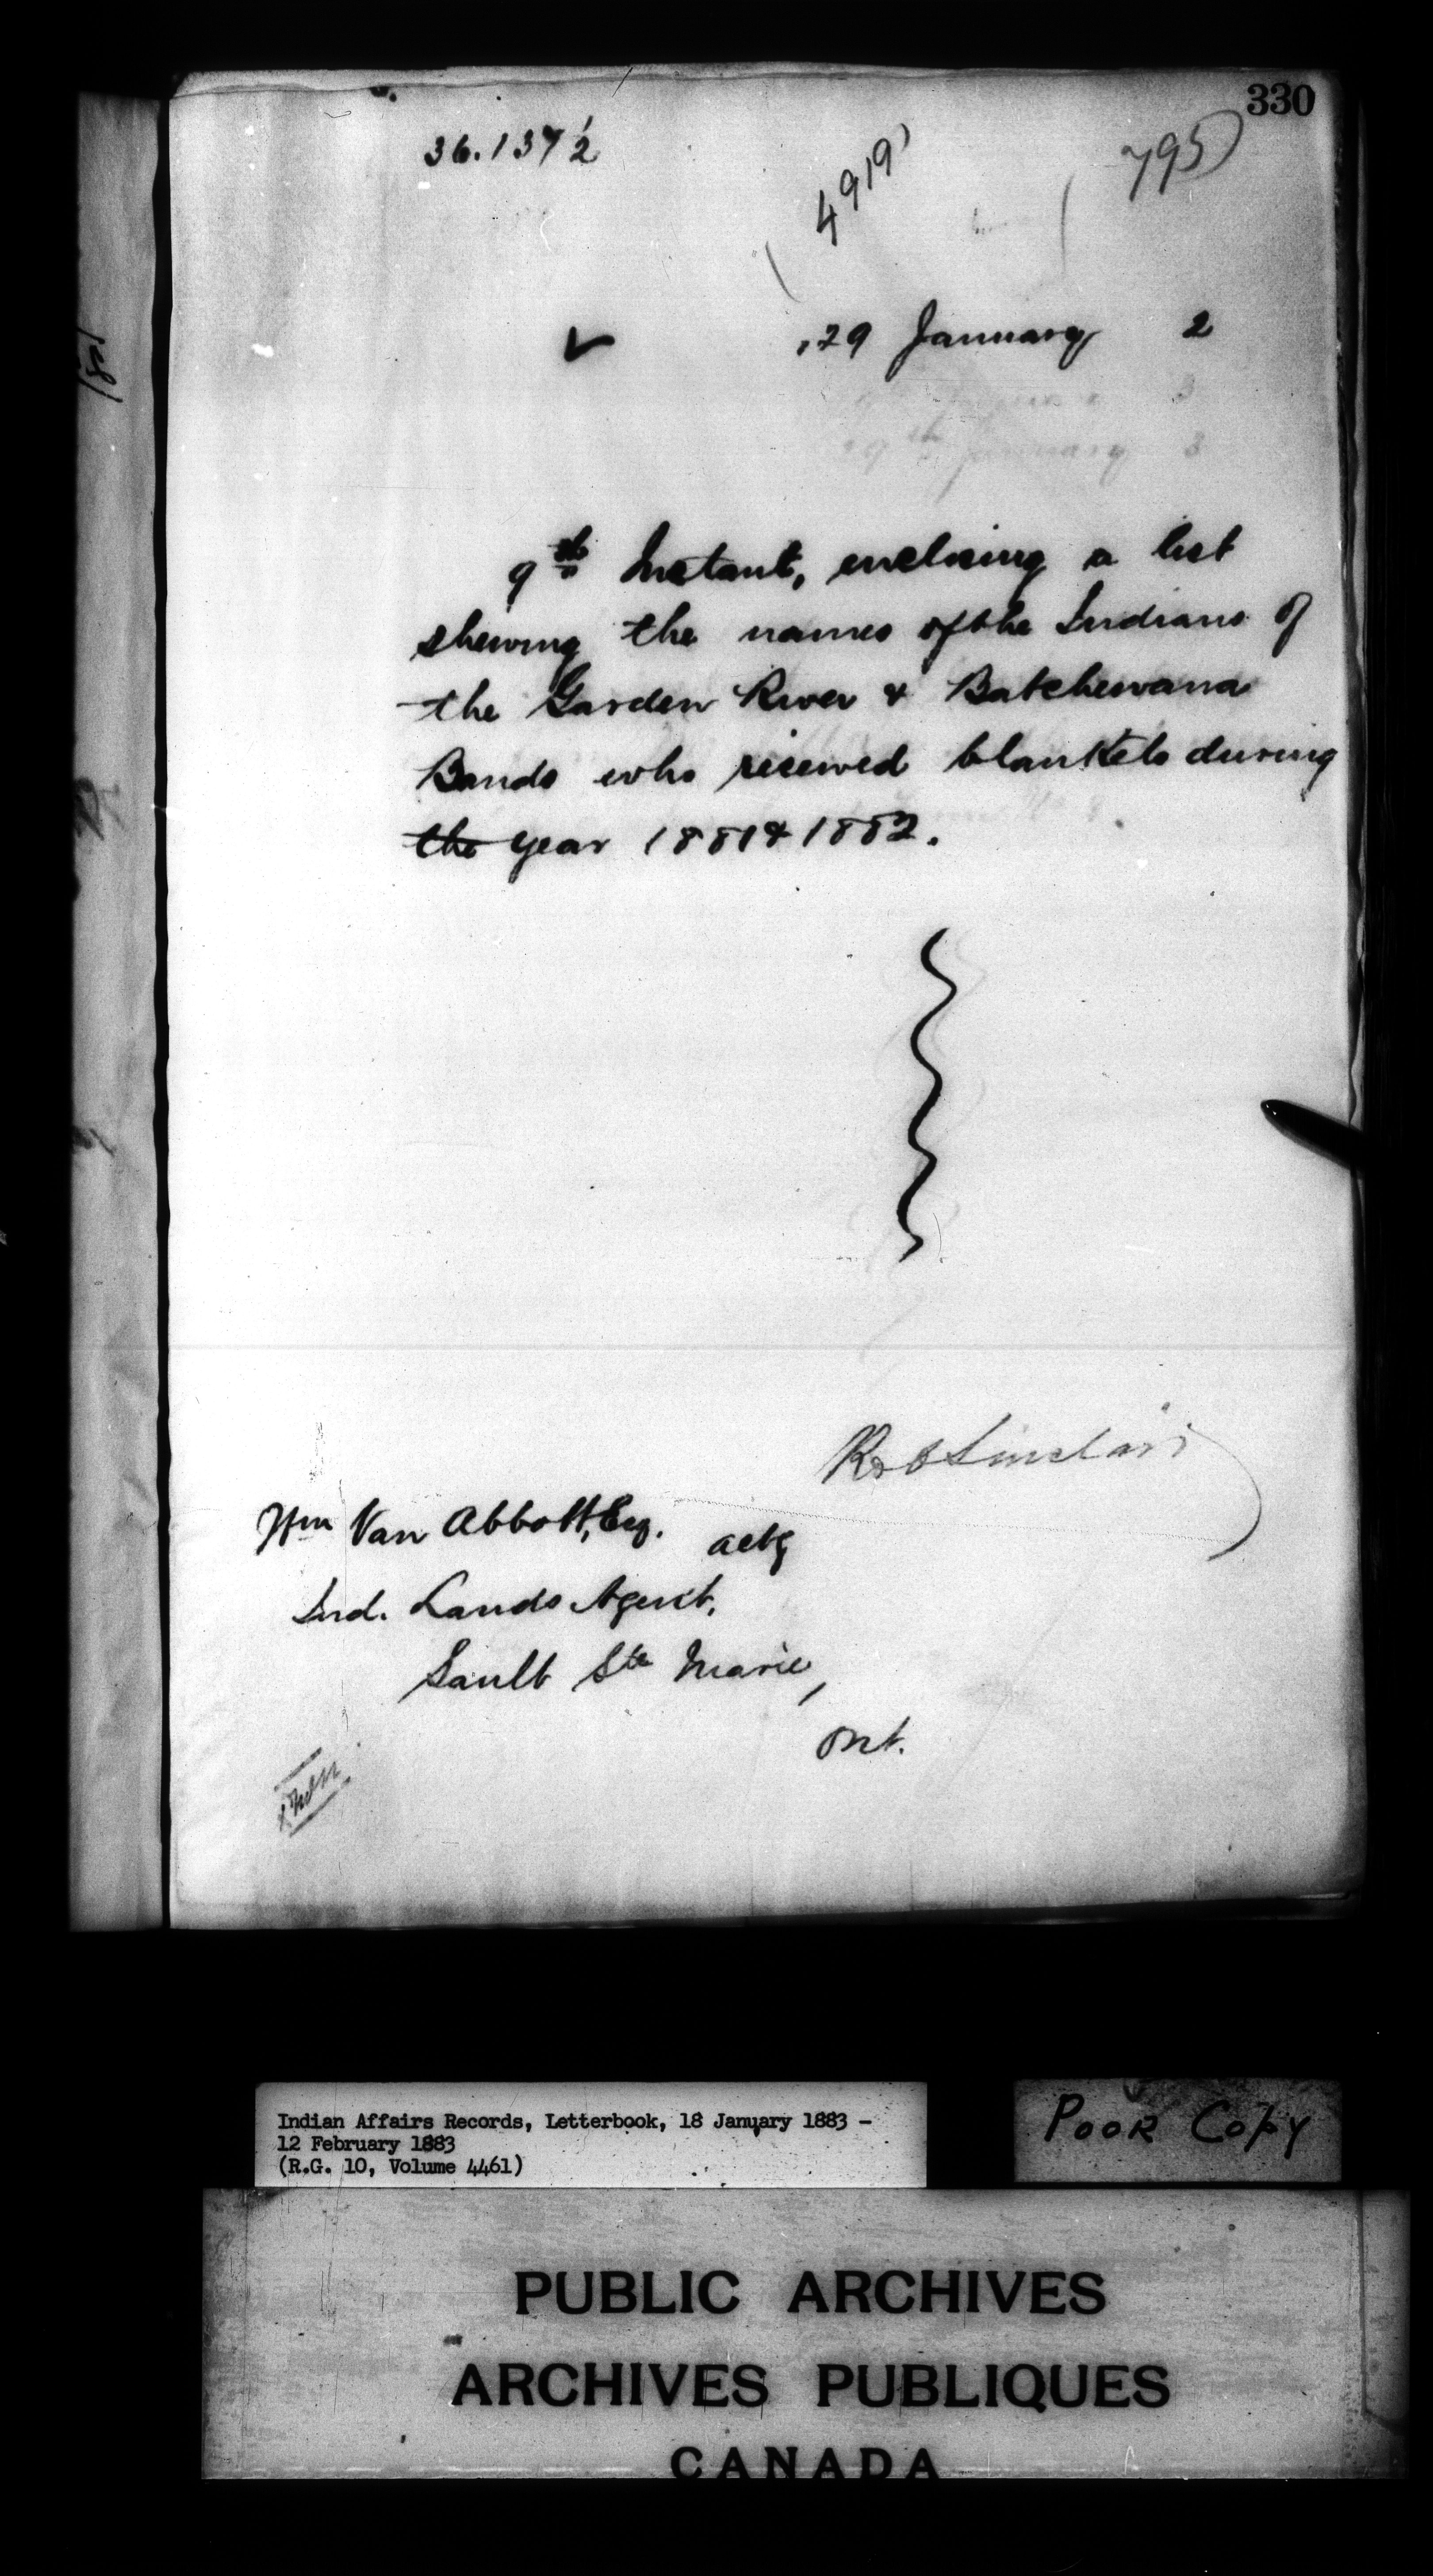 330
36.137½
(4919)
(795)
29 January 2
9th Instant, enclosing a list
shewing the names of the Indians of
the Garden River & Batchewana
Bands who received blankets during
the year 1881 & 1882.
Rob Sinclair
Wm Van Abbott, Esq.
actg
Ind. Lands Agent,
Sault Ste Marie,
Ont.
Indian Affairs Records, Letterbook, 18 January 1883 -
12 February 1883
(R.G. 10, Volume 4461)
POOR COPY
PUBLIC ARCHIVES
ARCHIVES PUBLIQUES
CANADA